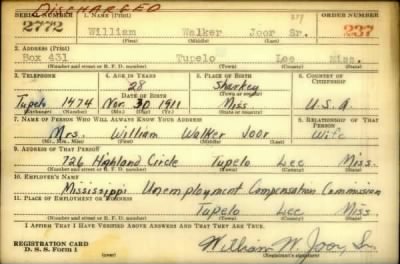 DISCHARGED
SERIAL NUMBER 1. NAME (Print) ORDER NUMBER
2772 William Walker Joor Sr. 237
(First) (Middle) (Last)
2. ADDRESS (Print)
Box 431 Tupelo Lee Miss.
(Number and street or R. F. D. number) (Town) (County) (State)
3. TELEPHONE 4. AGE IN YEARS 5. PLACE OF BIRTH 6. COUNTRY OF CITIZENSHIP
28 Sharkey
DATE OF BIRTH (Town or county)
Tupelo 1474 Nov. 30 1911 Miss U.S.A.
(Exchange) (Number) (Mo.) (Day) (Yr.) (State or country)
7. NAME OF PERSON WHO WILL ALWAYS KNOW YOUR ADDRESS 8. RELATIONSHIP OF THAT PERSON
Mrs. William Walker Joor Wife
(Mr., Mrs., Miss) (First) (Middle) (Last)
9. ADDRESS OF THAT PERSON
726 Highland Circle Tupelo Lee Miss.
(Number and street or R. F. D. number) (Town) (County) (State)
10. EMPLOYER'S NAME
Mississippi Unemployment Compensation Commission
11. PLACE OF EMPLOYMENT OR BUSINESS
Tupelo Lee Miss.
(Number and street or R. F. D. number) (Town) (County) (State)
I AFFIRM THAT I HAVE VERIFIED ABOVE ANSWERS AND THAT THEY ARE TRUE.
REGISTRATION CARD
D. S. S. Form 1
William W. Joor, Sr.
(Registrant's signature)